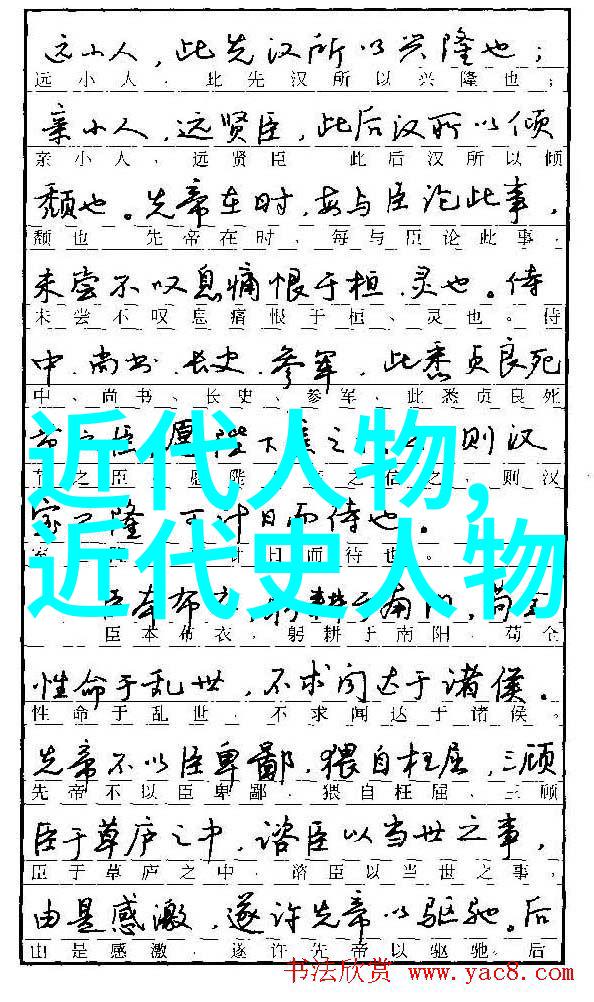 远小人，此先汉所以兴隆也；
远小人，此先汉所以兴隆也；
亲小人，远贤臣，此后汉所以倾
亲小人，远贤臣 此后汉所以倾
颓也。先帝在时，每与臣论此事，
颓也 先帝在时，每与臣论此事，
未尝不叹息痛恨于桓、灵也。侍
未尝不叹息痛恨于桓、灵也。侍
中、尚书、长史、参军，此悉贞良死
中、尚书、长史、参军，此悉贞良死
近代人物,
则汉
则汉
隆 可计日而待也。
计日而待也。
近代史人物
臣本布衣，躬耕于南阳，苟全
性命于乱世，不求闻达于诸侯。
性命于乱世，不求闻达于诸侯。
先帝不以臣卑鄙，猥自枉屈，三顾
先帝不以臣卑鄙，猥自枉屈、三顾
臣于草庐之中，谘臣以当世之事，
臣于草庐之中，谘臣以当世之事，
由是感激，遂许先帝以驱驰。后
由是感激，遂许先帝以驱驰。后
书法欣赏 www.yac8.com